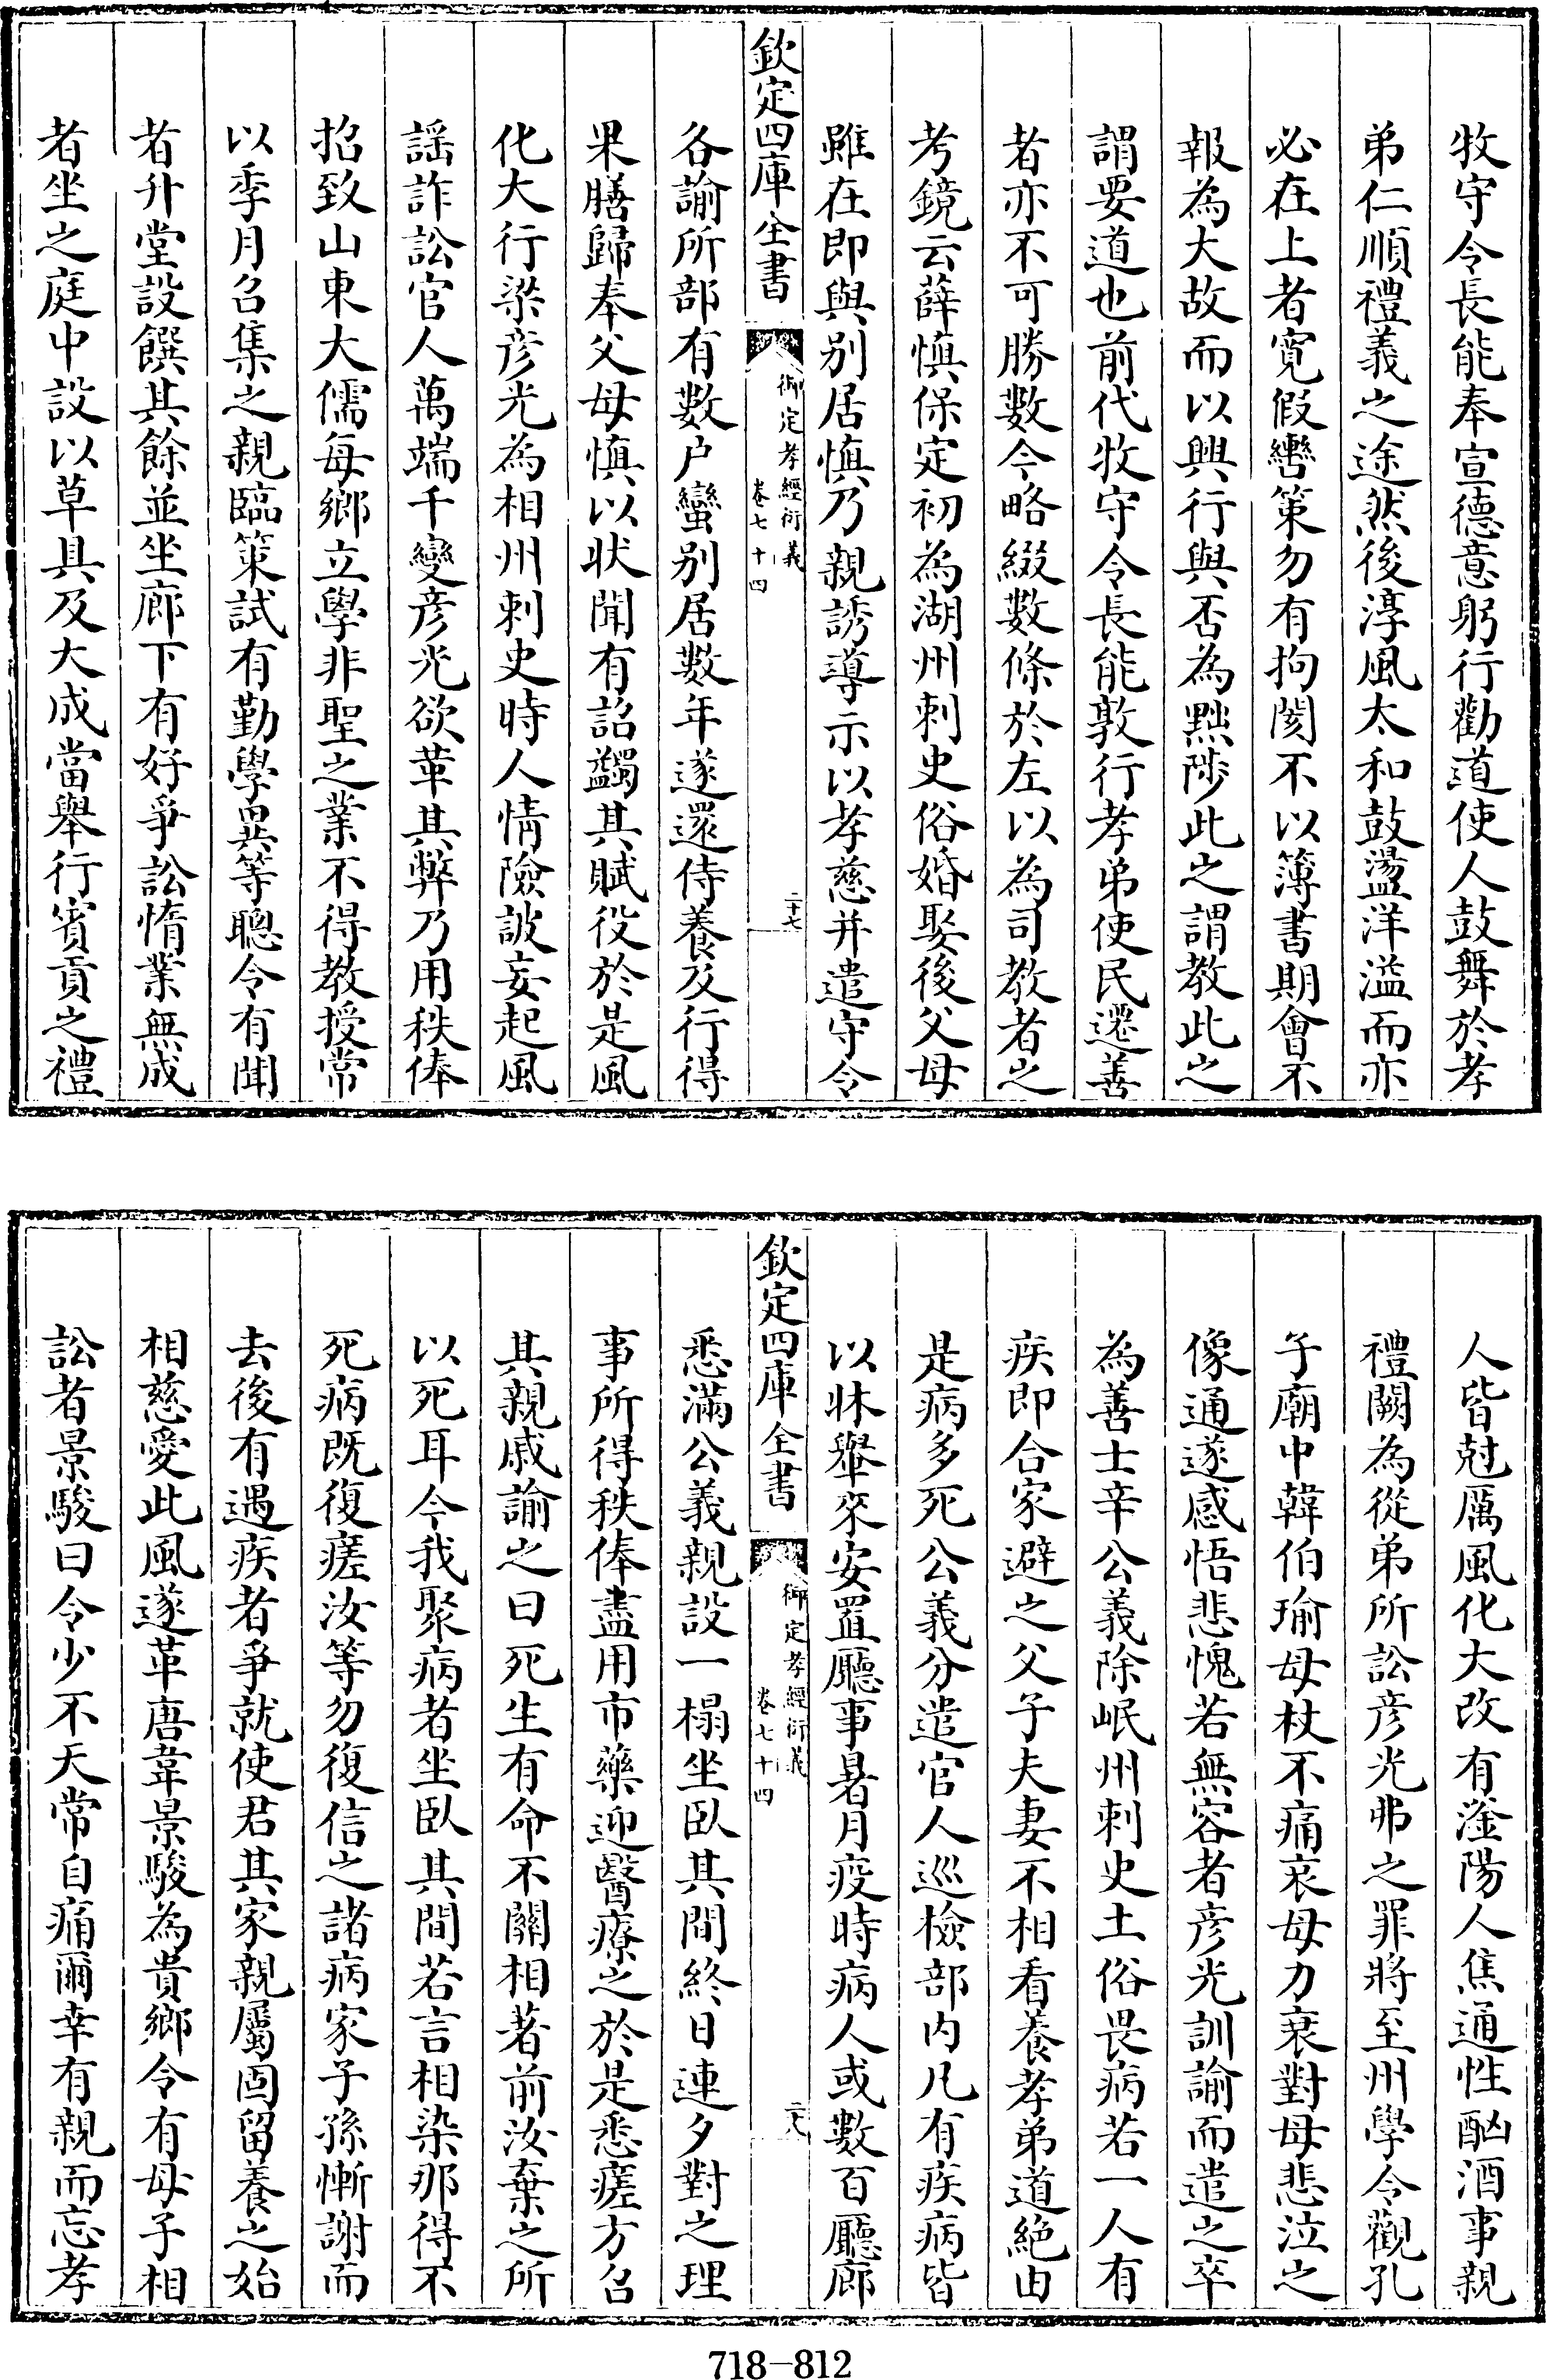 牧守令長能奉宣德意躬行勸道使人鼓舞於孝
弟仁順禮義之途然後淳風太和鼓盪洋溢而亦
必在上者寛假轡策勿有拘閡不以簿書期會不
報為大故而以興行與否為黜陟此之謂教此之
謂要道也前代牧守令長能敦行孝弟使民遷善
者亦不可勝數今略綴數條於左以為司教者之
考鏡云薛慎保定初為湖州刺史俗婚娶後父母
雖在即與别居慎乃親誘導示以孝慈并遣守令
欽定四庫全書
御定孝經衍義
卷七十四
二十七
各諭所部有數户蠻别居數年遂還侍養及行得
果膳歸奉父母慎以狀聞有詔蠲其賦役於是風
化大行梁彦光為相州刺史時人情險詖妄起風
謡訴訟官人萬端千變彦光欲革其弊乃用秩俸
招致山東大儒每鄉立學非聖之業不得教授常
以季月召集之親臨策試有勤學異等聰令有聞
者升堂設饌其餘並坐廊下有好爭訟惰業無成
者坐之庭中設以草具及大成當舉行賓貢之禮
人皆尅厲風化大改有滏陽人焦通性酗酒事親
禮闕為從弟所訟彦光弗之罪將至州學令觀孔
子廟中韓伯瑜母杖不痛哀母力衰對母悲泣之
像通遂感悟悲愧若無容者彦光訓諭而遣之卒
為善士辛公義除岷州刺史土俗畏病若一人有
疾即合家避之父子夫妻不相看養孝弟道絶由
是病多死公義分遣官人巡檢部内凡有疾病皆
以牀轝來安置廳事暑月疫時病人或數百廳廊
欽定四庫全書
御定孝經衍義
卷七十四
二十八
悉滿公義親設一榻坐臥其間終日連夕對之理
事所得秩俸盡用市藥迎醫療之於是悉瘥方召
其親戚諭之曰死生有命不關相著前汝棄之所
以死耳今我聚病者坐臥其間若言相染那得不
死病既復瘥汝等勿復信之諸病家子孫慚謝而
去後有遇疾者爭就使君其家親屬固留養之始
相慈愛此風遂革唐韋景駿為貴鄉令有母子相
訟者景駿曰令少不天常自痛爾幸有親而忘孝
718-812